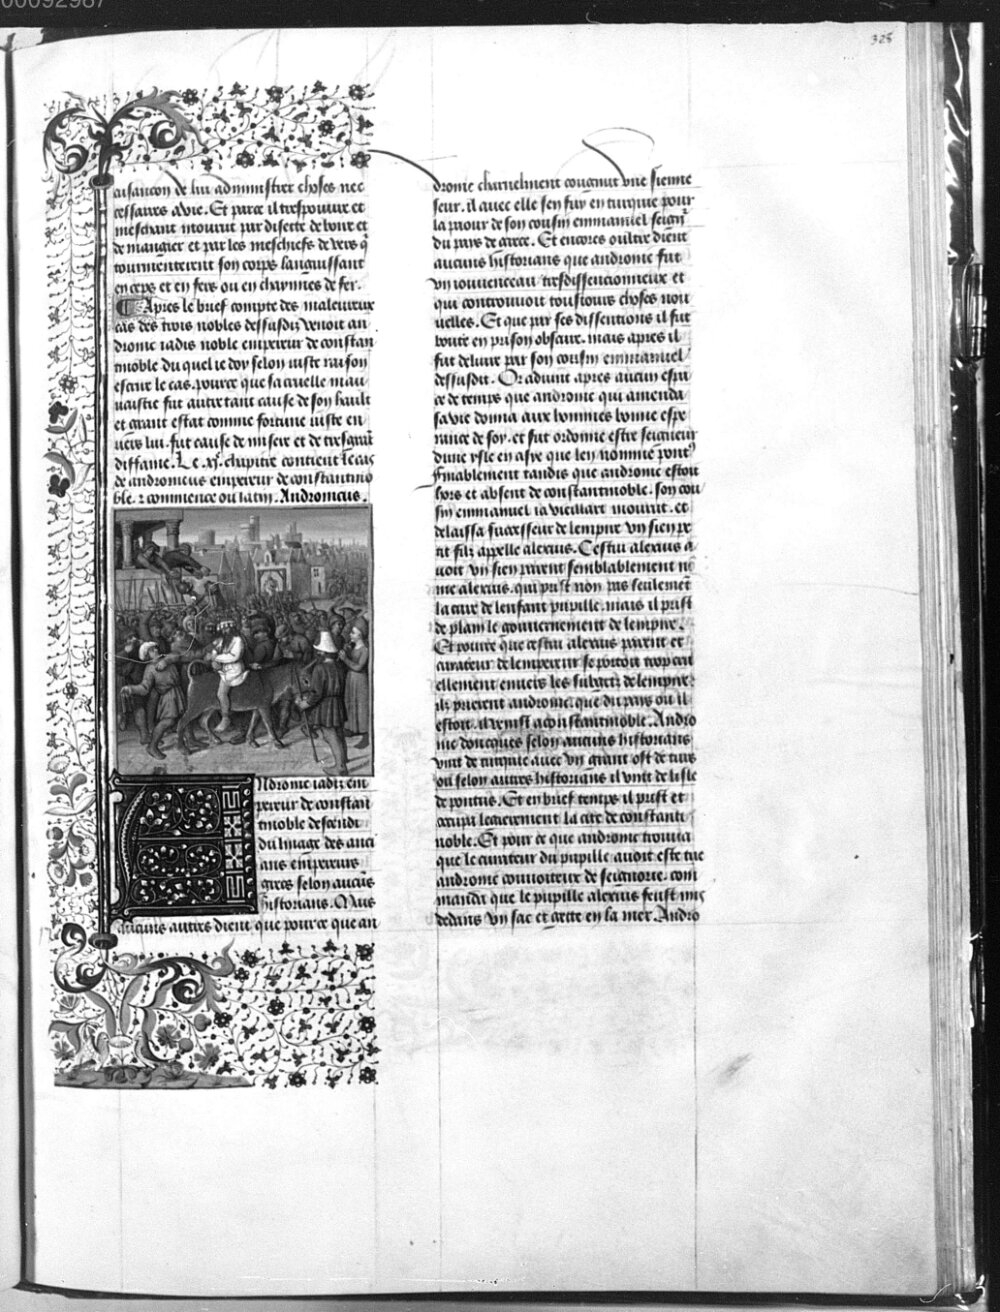 00092987
328
aisancon de lui administrer choses nec
cessaires a vie. Et parce il trespouure et
meschant mourut par disecte de boire et
de mangier et par les meschiefs de vers q̄
tourmenterent son corps languissant
en ceps et en fers ou en chaynnes de fer.
Apres le brief compte des maleureux
cas des trois nobles dessusdiz venoit an
dronie iadis noble empereur de constan
tinoble du quel ie doy selon iuste raison
escrire le cas. pource que sa cruelle mau
uaistie fut autretant cause de son hault
et grant estat comme fortune iuste en
uers lui. fut cause de misere et de tresgrāt
diffame. Le .xj. chapitre contient le cas
de andronicus empereur de constantino
ble. 2 commence ou latin. Andronicus.
Andronie iadiz em
pereur de constan
tinoble descendi
du linage des anci
ans empereurs
grecs selon aucuns
historians. Mais
aucuns autres dient que pource que an
dronie charnelment congnut vne sienne
seur. il auec elle sen fuy en turquie pour
la paour de son cousin emmanuel seigñ
du pays de grece. Et encores oultre dient
aucuns historians que andronie fut
vn iouuenceau tresdissencionneux et
qui controuuoit tousiours choses nou
uelles. Et que par ses dissentions il fut
boute en prison obscure. mais apres il
fut deliure par son cousin emmanuel
dessusdit. Or aduint apres aucun espa
ce de temps que andronie qui amenda
sa vie donna aux hommes bonne espe
rance de soy. et fut ordonne estre seigneur
dune ysle en asye que len nomme pont9
Finablement tandis que andronie estoit
hors et absent de constantinoble. son cou
sin emmanuel ia vieillart mourut. et
delaissa successeur de lempire vn sien pe
tit filz appelle alexius. Cestui alexius a
uoit vn sien parent semblablement nō
me alexius. qui prist non pas seulemēt
la cure de lenfant pupille. mais il prist
de plain le gouuernement de lempire.
Et pource que cestui alexius parent et
curateur de lempereur se portoit trop cru
ellement enuers les subgetz de lempire
ilz prierent andronie. que du pays ou il
estoit. il venist a constantinoble. Andro
nie doncques selon aucuns historians
vint de turquie auec vn grant ost de turs
ou selon autres historians il vint de lisle
de pontus. Et en brief temps il prist et
occupa legierement la cite de constanti
noble. Et pour ce que andronie trouua
que le curateur du pupille auoit este tue
andronie conuoiteux de seignorie. com
manda que le pupille alexius feust mis
dedans vn sac et gecte en la mer. Andro